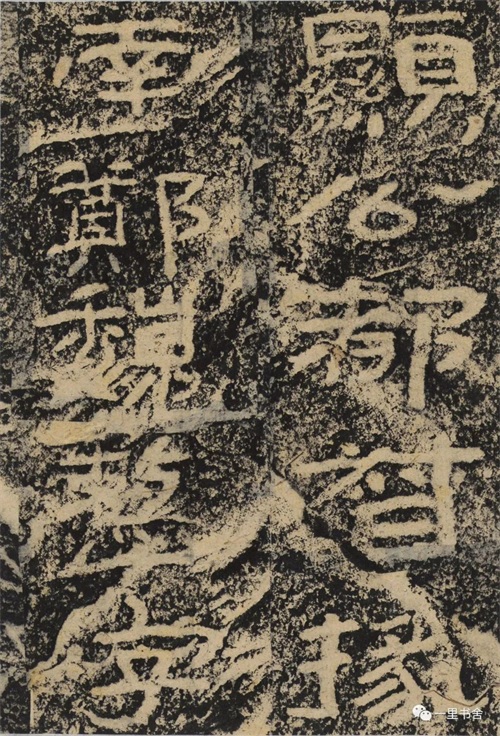 顯公都督掾
南鄭魏整字
一里书舍